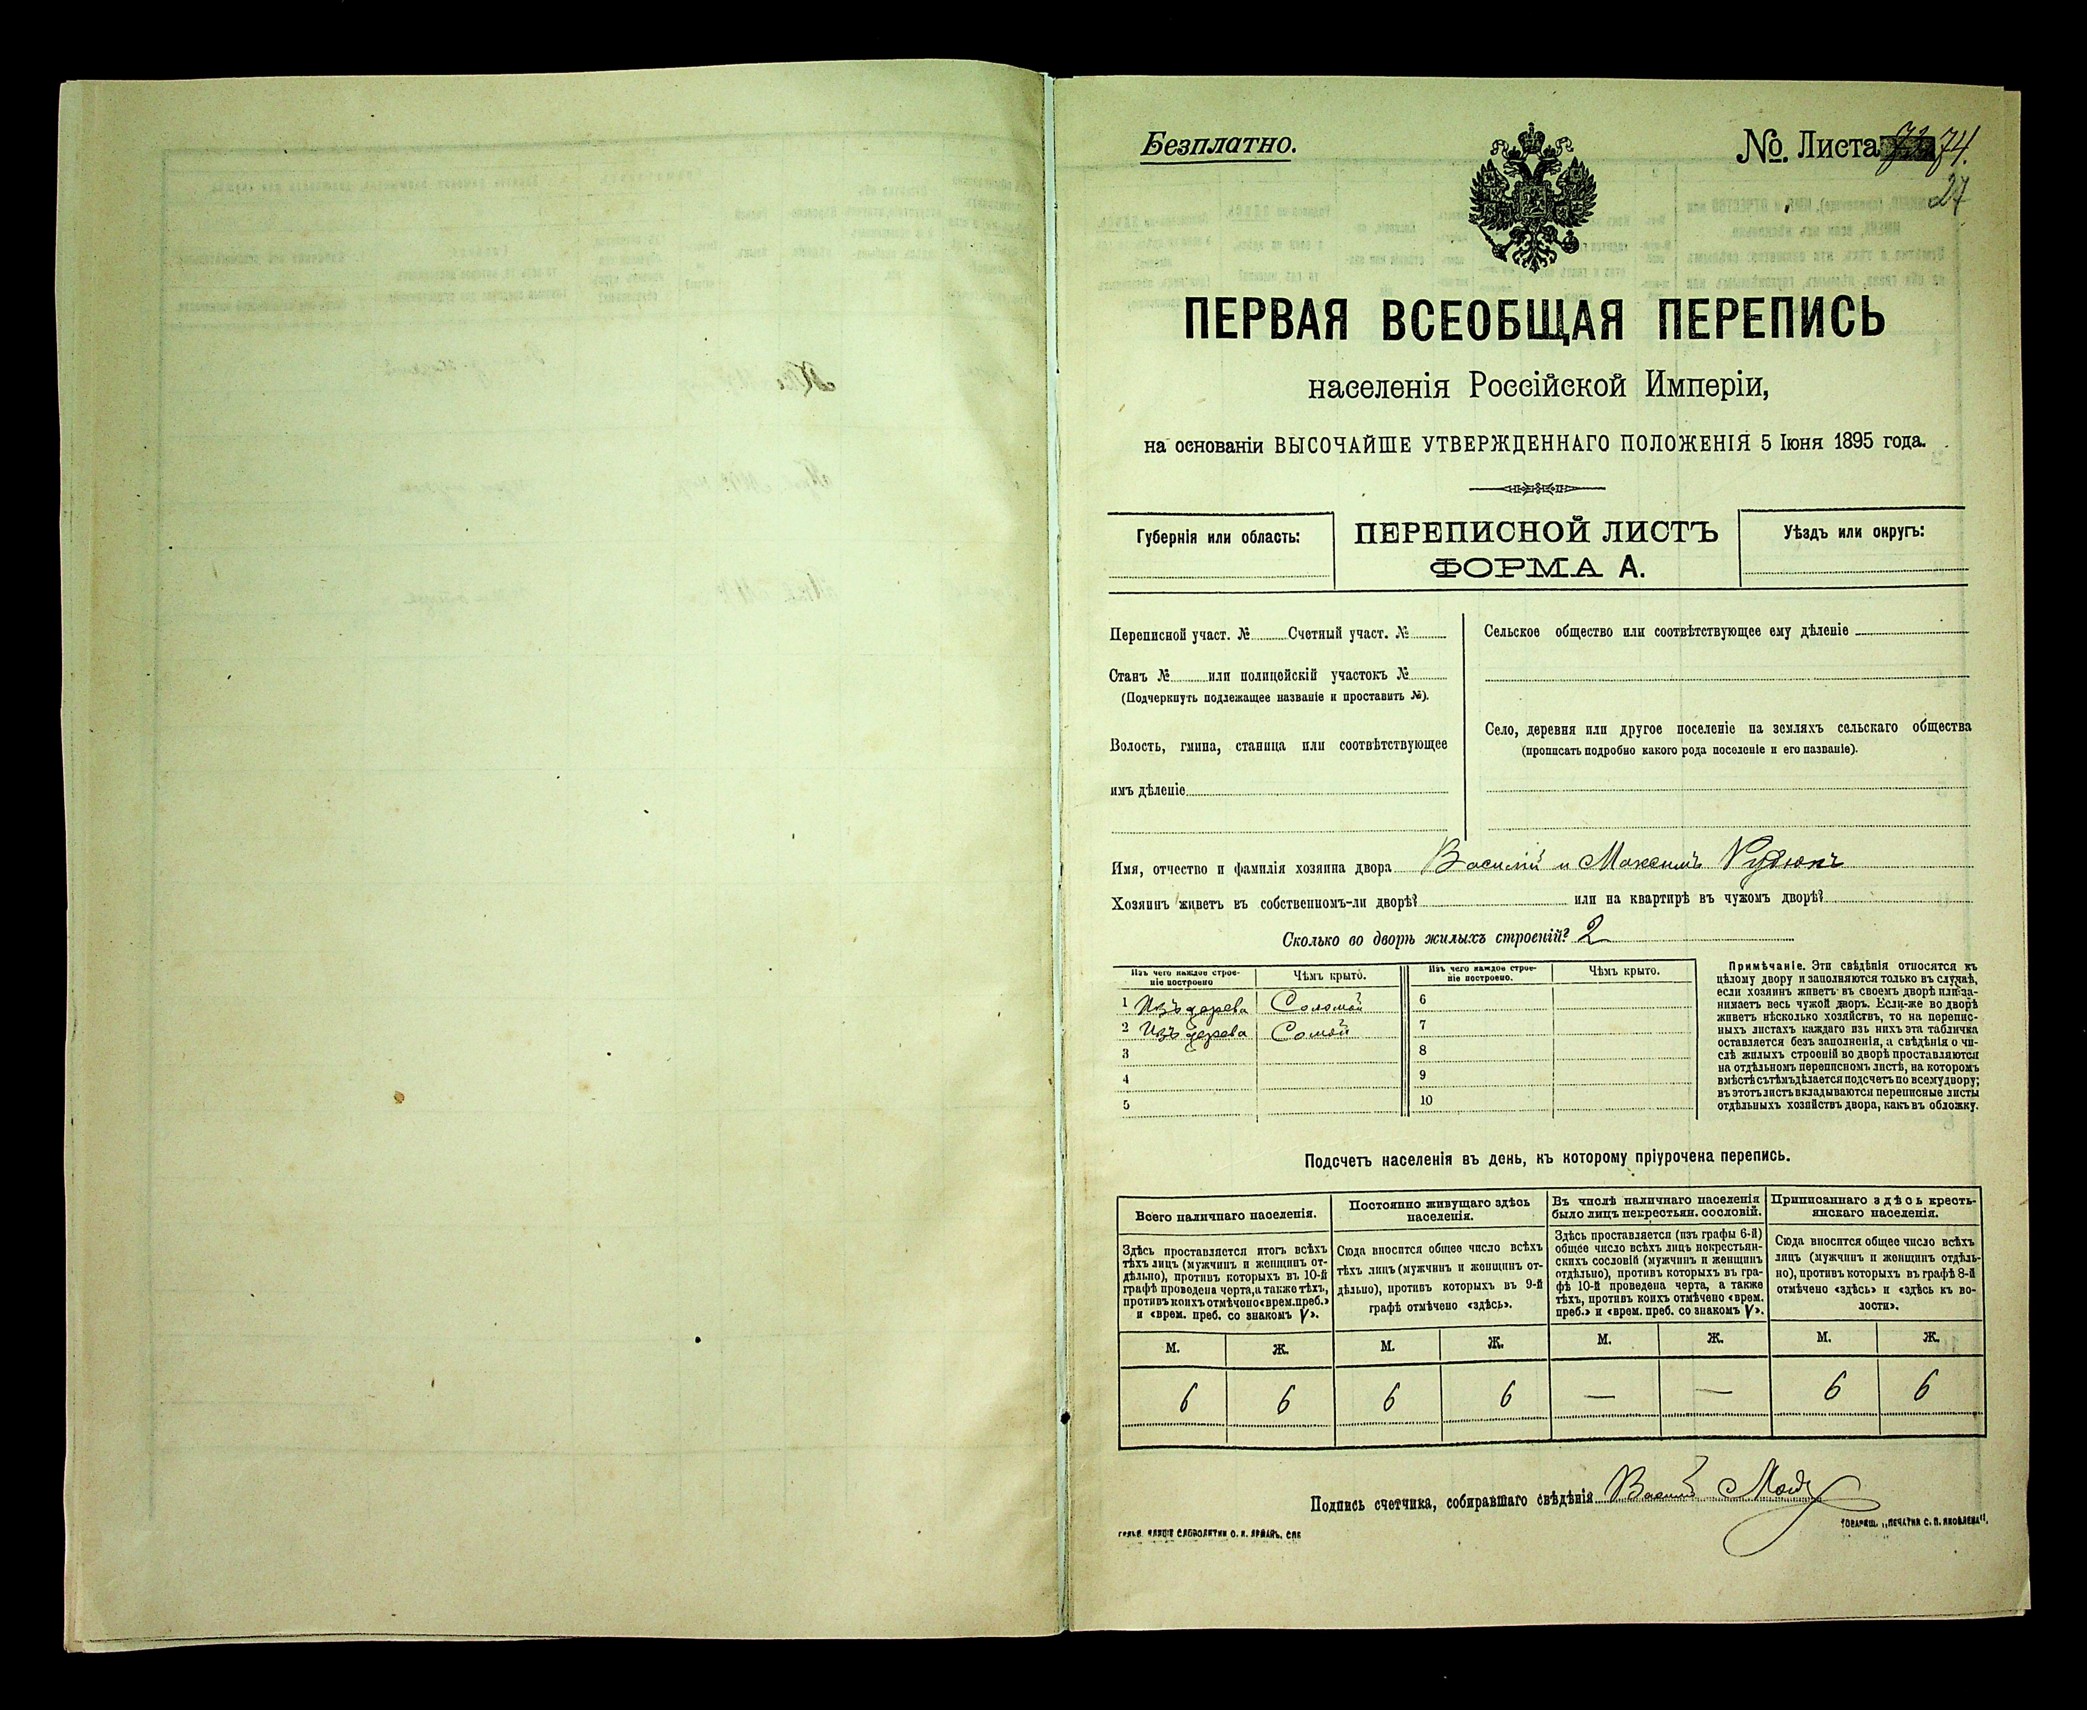 Безплатно.
№. Листа 74.
27
ПЕРВАЯ ВСЕОБЩАЯ ПЕРЕПИСЬ
населенія Россійской Имперіи,
на основаніи ВЫСОЧАЙШЕ УТВЕРЖДЕННАГО ПОЛОЖЕНІЯ 5 Іюня 1895 года.
Губернія или область:
ПЕРЕПИСНОЙ ЛИСТЪ
ФОРМА А.
Уѣздъ или округъ:
Переписной участ. № Счетный участ. №
Станъ № или полицейскій участокъ №
(Подчеркнуть подлежащее названіе и проставить №).
Волость, гмина, станица или соотвѣтствующее
имъ дѣленіе
Сельское общество или соотвѣтствующее ему дѣленіе
Село, деревня или другое поселеніе на земляхъ сельскаго общества
(прописать подробно какого рода поселеніе и его названіе).
Имя, отчество и фамилія хозяина двора Василій и Максимъ Рудюкъ
Хозяинъ живетъ въ собственномъ-ли дворѣ? или на квартирѣ въ чужомъ дворѣ?
Сколько во дворѣ жилыхъ строеній? 2
Изъ чего каждое строе-
ніе построено
Чѣмъ крыто.
Изъ чего каждое строе-
ніе построено.
Чѣмъ крыто.
1 Изъ дерева Соломой 6
2 Изъ дерева Сомой 7
3 8
4 9
5 10
Примѣчаніе. Эти свѣдѣнія относятся къ
цѣлому двору и заполняются только въ случаѣ,
если хозяинъ живетъ въ своемъ дворѣ или за-
нимаетъ весь чужой дворъ. Если-же во дворѣ
живетъ нѣсколько хозяйствъ, то на перепис-
ныхъ листахъ каждаго изъ нихъ эта табличка
оставляется безъ заполненія, а свѣдѣнія о чи-
слѣ жилыхъ строеній во дворѣ проставляются
на отдѣльномъ переписномъ листѣ, на которомъ
вмѣстѣ съ тѣмъ дѣлается подсчетъ по всему двору;
въ этотъ листъ вкладываются переписные листы
отдѣльныхъ хозяйствъ двора, какъ въ обложку.
Подсчетъ населенія въ день, къ которому пріурочена перепись.
Всего наличнаго населенія.
Здѣсь проставляется итогъ всѣхъ
тѣхъ лицъ (мужчинъ и женщинъ от-
дѣльно), противъ которыхъ въ 10-й
графѣ проведена черта, а также тѣхъ,
противъ коихъ отмѣчено «врем. преб.»
и «врем. преб. со знакомъ V».
Постоянно живущаго здѣсь
населенія.
Сюда вносится общее число всѣхъ
тѣхъ лицъ (мужчинъ и женщинъ от-
дѣльно), противъ которыхъ въ 9-й
графѣ отмѣчено «здѣсь».
Въ числѣ наличнаго населенія
было лицъ некрестьян. сословій.
Здѣсь проставляется (изъ графы 6-й)
общее число всѣхъ лицъ некрестьян-
скихъ сословій (мужчинъ и женщинъ
отдѣльно), противъ которыхъ въ гра-
фѣ 10-й проведена черта, а также
тѣхъ, противъ коихъ отмѣчено «врем.
преб.» и «врем. преб. со знакомъ V».
Приписаннаго здѣсь кресть-
янскаго населенія.
Сюда вносится общее число всѣхъ
лицъ (мужчинъ и женщинъ отдѣль-
но), противъ которыхъ въ графѣ 8-й
отмѣчено «здѣсь» и «здѣсь къ во-
лости».
М. Ж. М. Ж. М. Ж. М. Ж.
6 6 6 6 — — 6 6
Подпись счетчика, собиравшаго свѣдѣнія Василій
ТОВАРИЩ. „ПЕЧАТНИ С. П. ЯКОВЛЕВА".